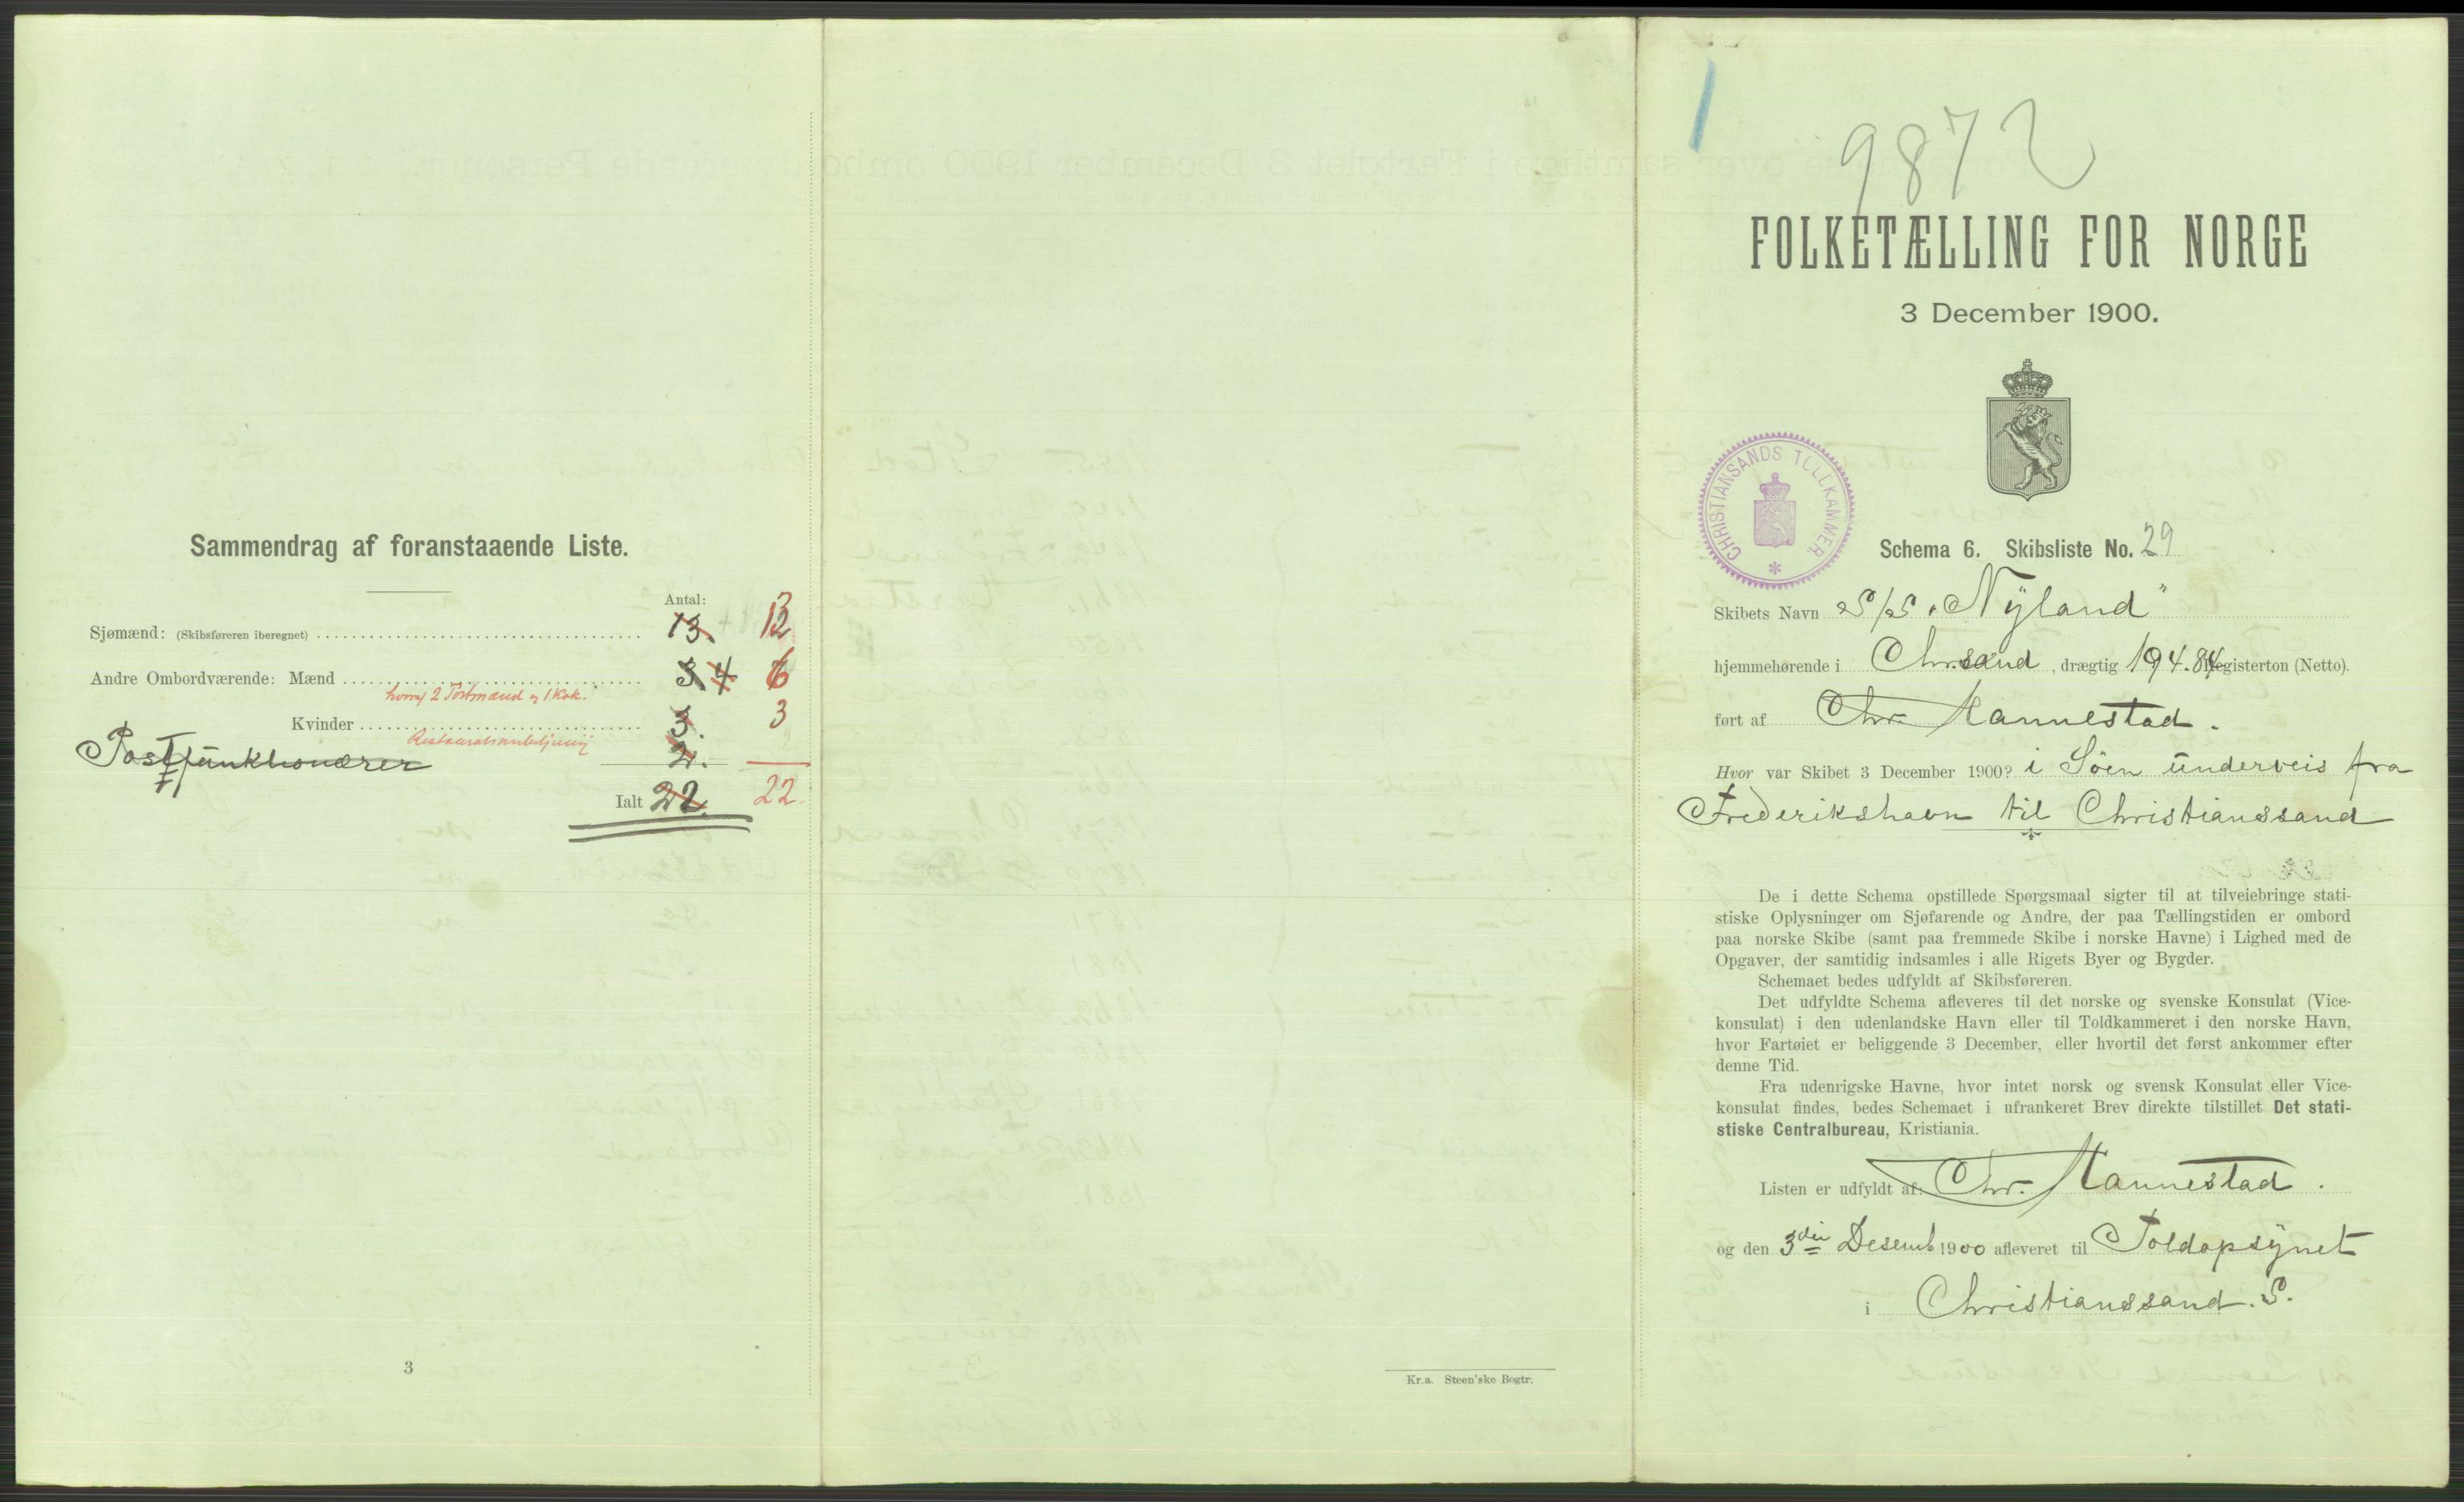 Sammendrag af foranstaaende Liste.
Antal:
Sjømænd: (Skibsføreren iberegnet) 13. 12
Andre Ombordværende: Mænd 3 4 6
hvoraf 2 Postmænd og 1 Kok.
Kvinder 3. 3
Restaurationsbetjening
Postfunktionærer 2.
Ialt 22. 22.
3
Kr.a. Steen'ske Bogtr.
1
9872
FOLKETÆLLING FOR NORGE
3 December 1900.
CHRISTIANSANDS TOLLKAMMER
Schema 6. Skibsliste No. 29
Skibets Navn S/S „Nÿland"
hjemmehørende i Chr.sand, drægtig 194.84 Registerton (Netto).
ført af Chr. Mannestad.
Hvor var Skibet 3 December 1900? i Søen underveis fra
Frederikshavn til Christianssand
De i dette Schema opstillede Spørgsmaal sigter til at tilveiebringe stati-
stiske Oplysninger om Sjøfarende og Andre, der paa Tællingstiden er ombord
paa norske Skibe (samt paa fremmede Skibe i norske Havne) i Lighed med de
Opgaver, der samtidig indsamles i alle Rigets Byer og Bygder.
Schemaet bedes udfyldt af Skibsføreren.
Det udfyldte Schema afleveres til det norske og svenske Konsulat (Vice-
konsulat) i den udenlandske Havn eller til Toldkammeret i den norske Havn,
hvor Fartøiet er beliggende 3 December, eller hvortil det først ankommer efter
denne Tid.
Fra udenrigske Havne, hvor intet norsk og svensk Konsulat eller Vice-
konsulat findes, bedes Schemaet i ufrankeret Brev direkte tilstillet Det stati-
stiske Centralbureau, Kristiania.
Listen er udfyldt af: Chr. Mannestad.
og den 3die Desemb 1900 afleveret til Toldopsÿnet
i Christianssand. S.